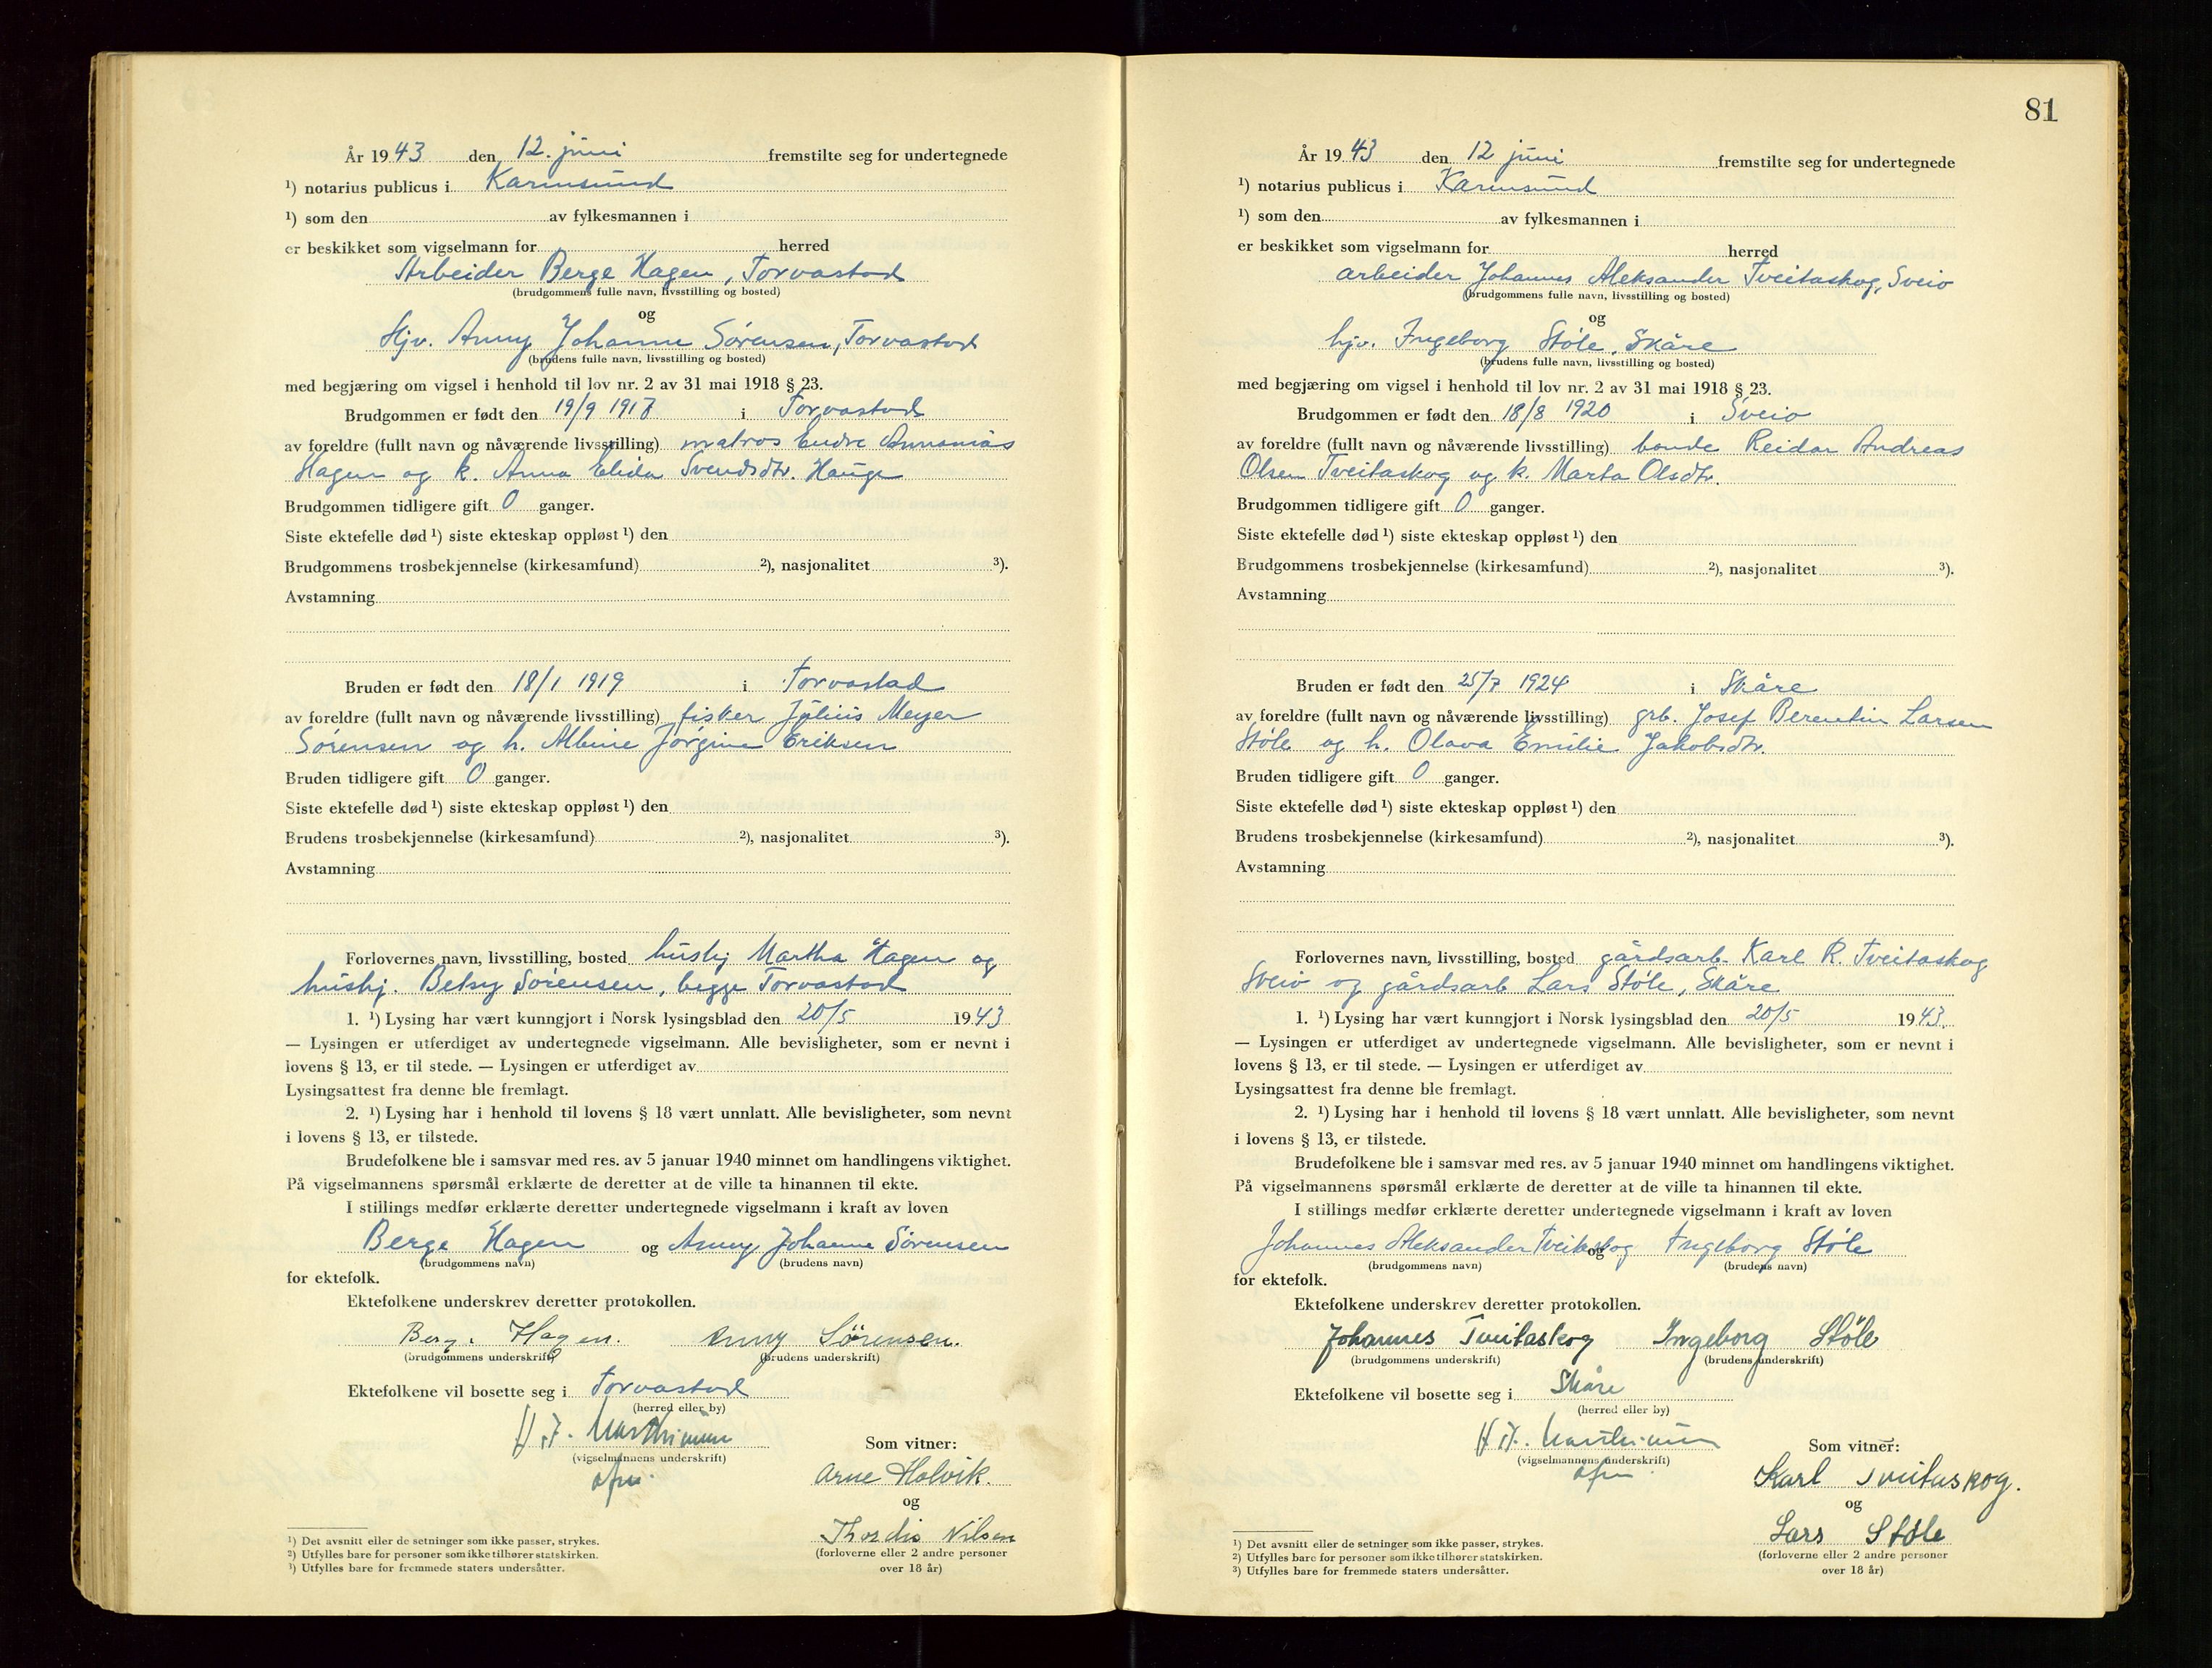 År 19 43 den 12. juni fremstilte seg for undertegnede
¹) notarius publicus i Karmsund
¹) som den av fylkesmannen i
er beskikket som vigselmann for herred
Arbeider Berge Hagen, Torvastad
(brudgommens fulle navn, livsstilling og bosted)
og
Hjv. Anny Johanne Sørensen, Torvastad
(brudens fulle navn, livsstilling og bosted)
med begjæring om vigsel i henhold til lov nr. 2 av 31 mai 1918 § 23.
Brudgommen er født den 19/9 1917 i Torvastad
av foreldre (fullt navn og nåværende livsstilling) matros Endre Annanias
Hagen og k. Anna Elida Svendsdtr. Hauge
Brudgommen tidligere gift 0 ganger.
Siste ektefelle død ¹) siste ekteskap oppløst ¹) den
Brudgommens trosbekjennelse (kirkesamfund) ²), nasjonalitet ³).
Avstamning
Bruden er født den 18/1 1919 i Torvastad
av foreldre (fullt navn og nåværende livsstilling) fisker Julius Meyer
Sørensen og h. Albine Jørgine Eriksen
Bruden tidligere gift 0 ganger.
Siste ektefelle død ¹) siste ekteskap oppløst ¹) den
Brudens trosbekjennelse (kirkesamfund) ²), nasjonalitet ³).
Avstamning
Forlovernes navn, livsstilling, bosted hushj Martha Hagen og
hushj. Betsy Sørensen, begge Torvastad
1. ¹) Lysing har vært kunngjort i Norsk lysingsblad den 20/5 19 43
— Lysingen er utferdiget av undertegnede vigselmann. Alle bevisligheter, som er nevnt i
lovens § 13, er til stede. — Lysingen er utferdiget av
Lysingsattest fra denne ble fremlagt.
2. ¹) Lysing har i henhold til lovens § 18 vært unnlatt. Alle bevisligheter, som nevnt
i lovens § 13, er tilstede.
Brudefolkene ble i samsvar med res. av 5 januar 1940 minnet om handlingens viktighet.
På vigselmannens spørsmål erklærte de deretter at de ville ta hinannen til ekte.
I stillings medfør erklærte deretter undertegnede vigselmann i kraft av loven
Berge Hagen og Anny Johanne Sørensen
(brudgommens navn) (brudens navn)
for ektefolk.
Ektefolkene underskrev deretter protokollen.
Berge Hagen. Anny Sörensen.
(brudgommens underskrift) (brudens underskrift)
Ektefolkene vil bosette seg i Torvastad
(herred eller by)
H. F.
(vigselmannens underskrift)
Som vitner:
Arne Holvik.
og
Thordis Nilsen
(forloverne eller 2 andre personer
over 18 år)
¹) Det avsnitt eller de setninger som ikke passer, strykes.
²) Utfylles bare for personer som ikke tilhører statskirken.
³) Utfylles bare for fremmede staters undersåtter.
81
År 19 43 den 12 juni fremstilte seg for undertegnede
¹) notarius publicus i Karmsund
¹) som den av fylkesmannen i
er beskikket som vigselmann for herred
arbeider Johannes Aleksander Tveitaskog, Sveio
(brudgommens fulle navn, livsstilling og bosted)
og
hjv. Ingeborg Støle, Skåre
(brudens fulle navn, livsstilling og bosted)
med begjæring om vigsel i henhold til lov nr. 2 av 31 mai 1918 § 23.
Brudgommen er født den 18/8 1920 i Sveio
av foreldre (fullt navn og nåværende livsstilling) bonde Reidar Andreas
Olsen Tveitaskog og k. Marta Olsdtr.
Brudgommen tidligere gift 0 ganger.
Siste ektefelle død ¹) siste ekteskap oppløst ¹) den
Brudgommens trosbekjennelse (kirkesamfund) ²), nasjonalitet ³).
Avstamning
Bruden er født den 25/7 1924 i Skåre
av foreldre (fullt navn og nåværende livsstilling) grb. Josef Berentin Larsen
Støle og h. Olava Emilie Jakobsdtr.
Bruden tidligere gift 0 ganger.
Siste ektefelle død ¹) siste ekteskap oppløst ¹) den
Brudens trosbekjennelse (kirkesamfund) ²), nasjonalitet ³).
Avstamning
Forlovernes navn, livsstilling, bosted gårdsarb. Karl R. Tveitaskog
Sveio og gårdsarb Lars Støle, Skåre
1. ¹) Lysing har vært kunngjort i Norsk lysingsblad den 20/5 19 43.
— Lysingen er utferdiget av undertegnede vigselmann. Alle bevisligheter, som er nevnt i
lovens § 13, er til stede. — Lysingen er utferdiget av
Lysingsattest fra denne ble fremlagt.
2. ¹) Lysing har i henhold til lovens § 18 vært unnlatt. Alle bevisligheter, som nevnt
i lovens § 13, er tilstede.
Brudefolkene ble i samsvar med res. av 5 januar 1940 minnet om handlingens viktighet.
På vigselmannens spørsmål erklærte de deretter at de ville ta hinannen til ekte.
I stillings medfør erklærte deretter undertegnede vigselmann i kraft av loven
Johannes Aleksander Tveitaskog og Ingeborg Støle
(brudgommens navn) (brudens navn)
for ektefolk.
Ektefolkene underskrev deretter protokollen.
Johannes Tveitaskog Ingeborg Støle
(brudgommens underskrift) (brudens underskrift)
Ektefolkene vil bosette seg i Skåre
(herred eller by)
H. F.
(vigselmannens underskrift)
Som vitner:
Karl Tveitaskog.
og
Lars Støle
(forloverne eller 2 andre personer
over 18 år)
¹) Det avsnitt eller de setninger som ikke passer, strykes.
²) Utfylles bare for personer som ikke tilhører statskirken.
³) Utfylles bare for fremmede staters undersåtter.